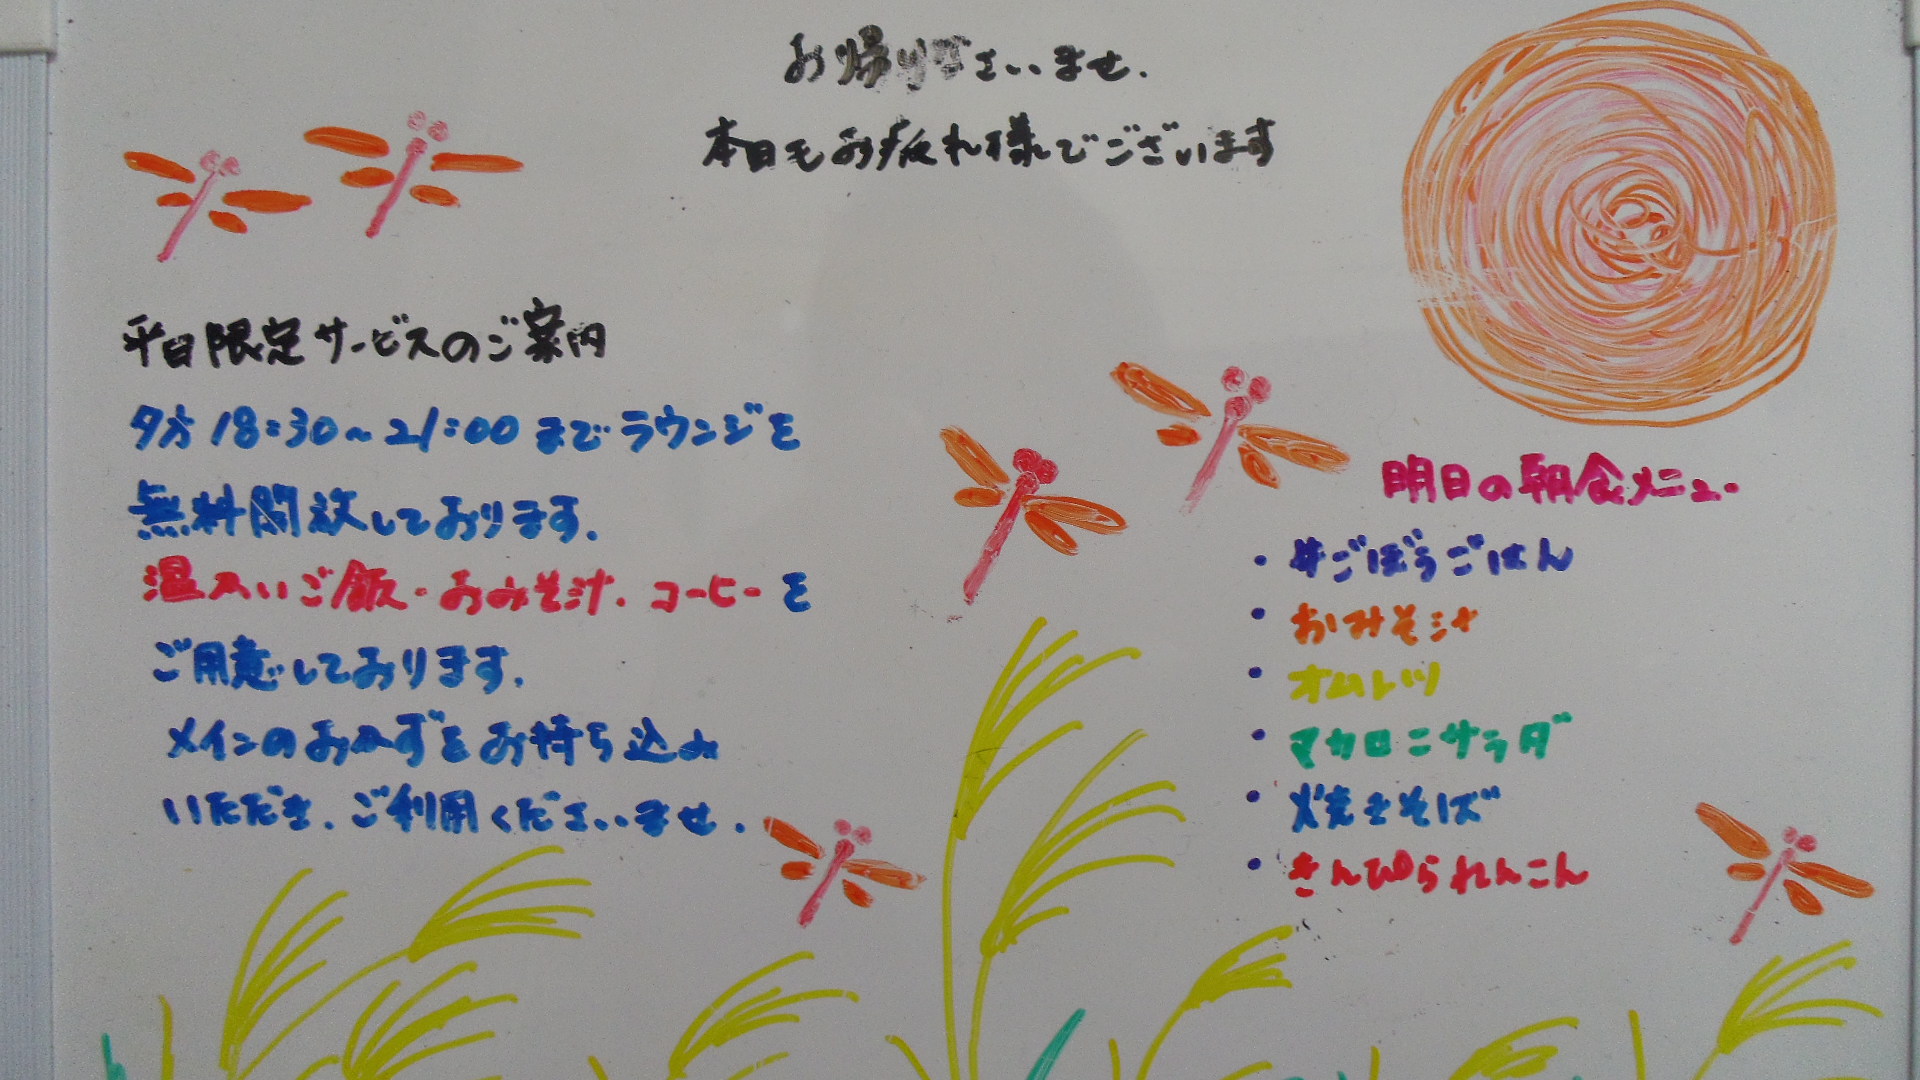 お帰りなさいませ.
本日もお疲れ様でございます
平日限定サービスのご案内
夕方18:30~21:00までラウンジを
無料開放しております.
温かいご飯・おみそ汁.コーヒーを
ご用意しております.
メインのおかずをお持ち込み
いただき.ご利用くださいませ.
明日の朝食メニュー
・牛ごぼうごはん
・おみそ汁
・オムレツ
・マカロニサラダ
・焼きそば
・きんぴられんこん